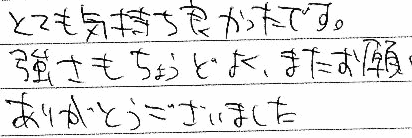 とても気持ち良かったです。
強さもちょうどよく、またお願い
ありがとうございました